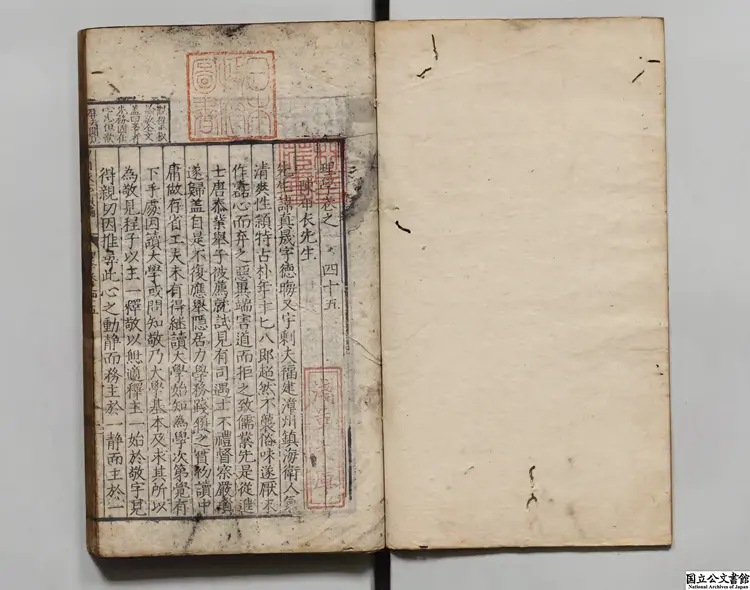 理學卷之 四十五
陳布衣先生
先生諱真晟字德晦又字剩夫福建漳州鎮海衛人
清爽性頴特古朴年十七八即超然不襲俗味遂厭末
作蠹心而弃之惡異端害道而拒之致儒業先是從進
士唐泰業舉子彼薦就試見有司遇士不禮督察嚴
遂歸蓋自是不復應舉隱居力學務踐履之實初讀中
庸做存省工夫未有得継讀大學始知為學次第覺有
下手處因讀大學或問知敬乃大學基本及求其所以
為敬見程子以主一釋敬以無適釋主一始於敬字見
得親切因推尋此心之動静而務主於一静而主於一
日本
圖書
淺草文庫
国立公文書館
National Archives of Japan